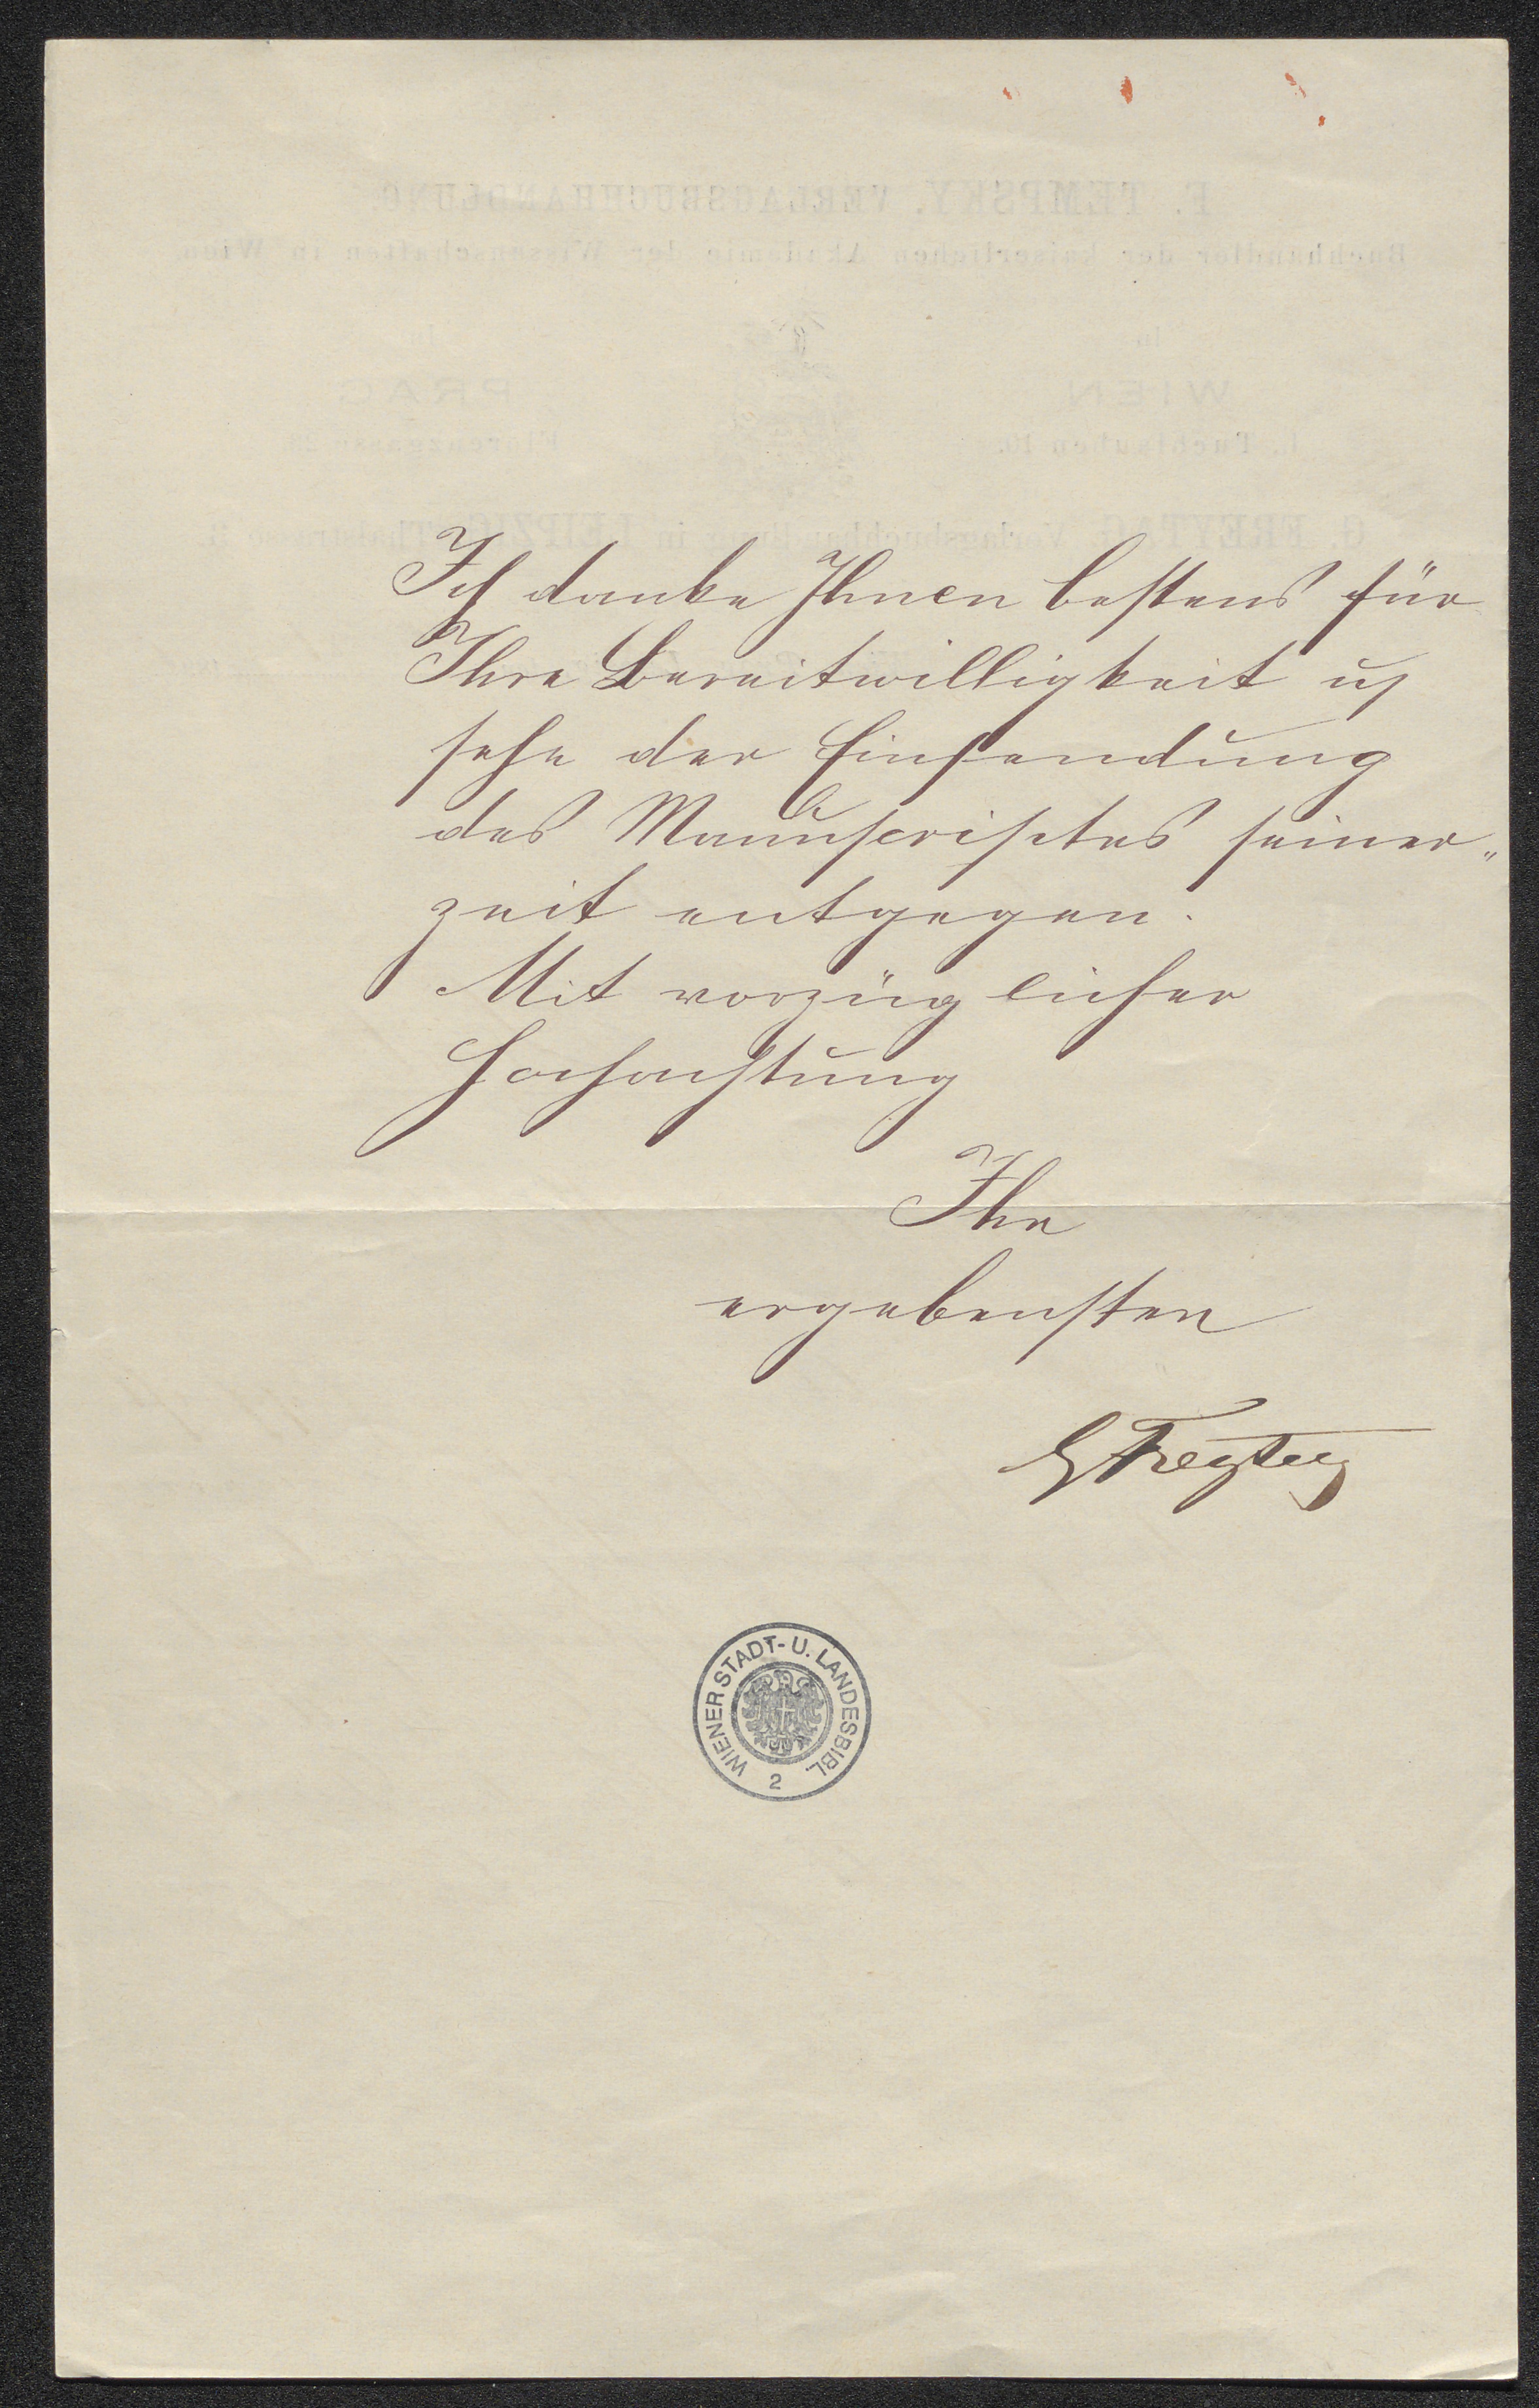 Ich danke Ihnen bestens für
Ihre Bereitwilligkeit u
sehe der Einsendung
des Manuscriptes seiner„
zeit entgegen.
Mit vorzüglicher
Hochachtung
Ihr
ergebenster
GFreytag
WIENER STADT- U. LANDESBIBL.
2